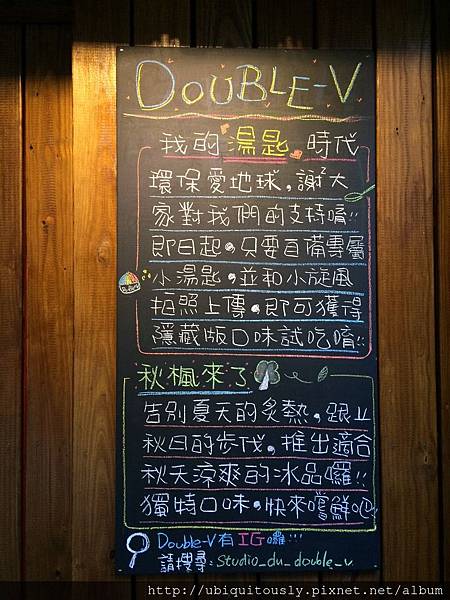 DOUBLE-V
我的湯匙時代
環保愛地球,謝²大
家對我們的支持唷!!
即日起。只要自備專屬
小湯匙,並和小旋風
拍照上傳。即可獲得
隱藏版口味試吃唷!!
秋楓來了
告別夏天的炙熱,跟上
秋日的步伐,推出適合
秋天涼爽的冰品囉!!
獨特口味,快來嚐鮮吧
Double-V有IG囉!!!
請搜尋:Studio_du_double_v
http://ubiquitously.pixnet.net/album